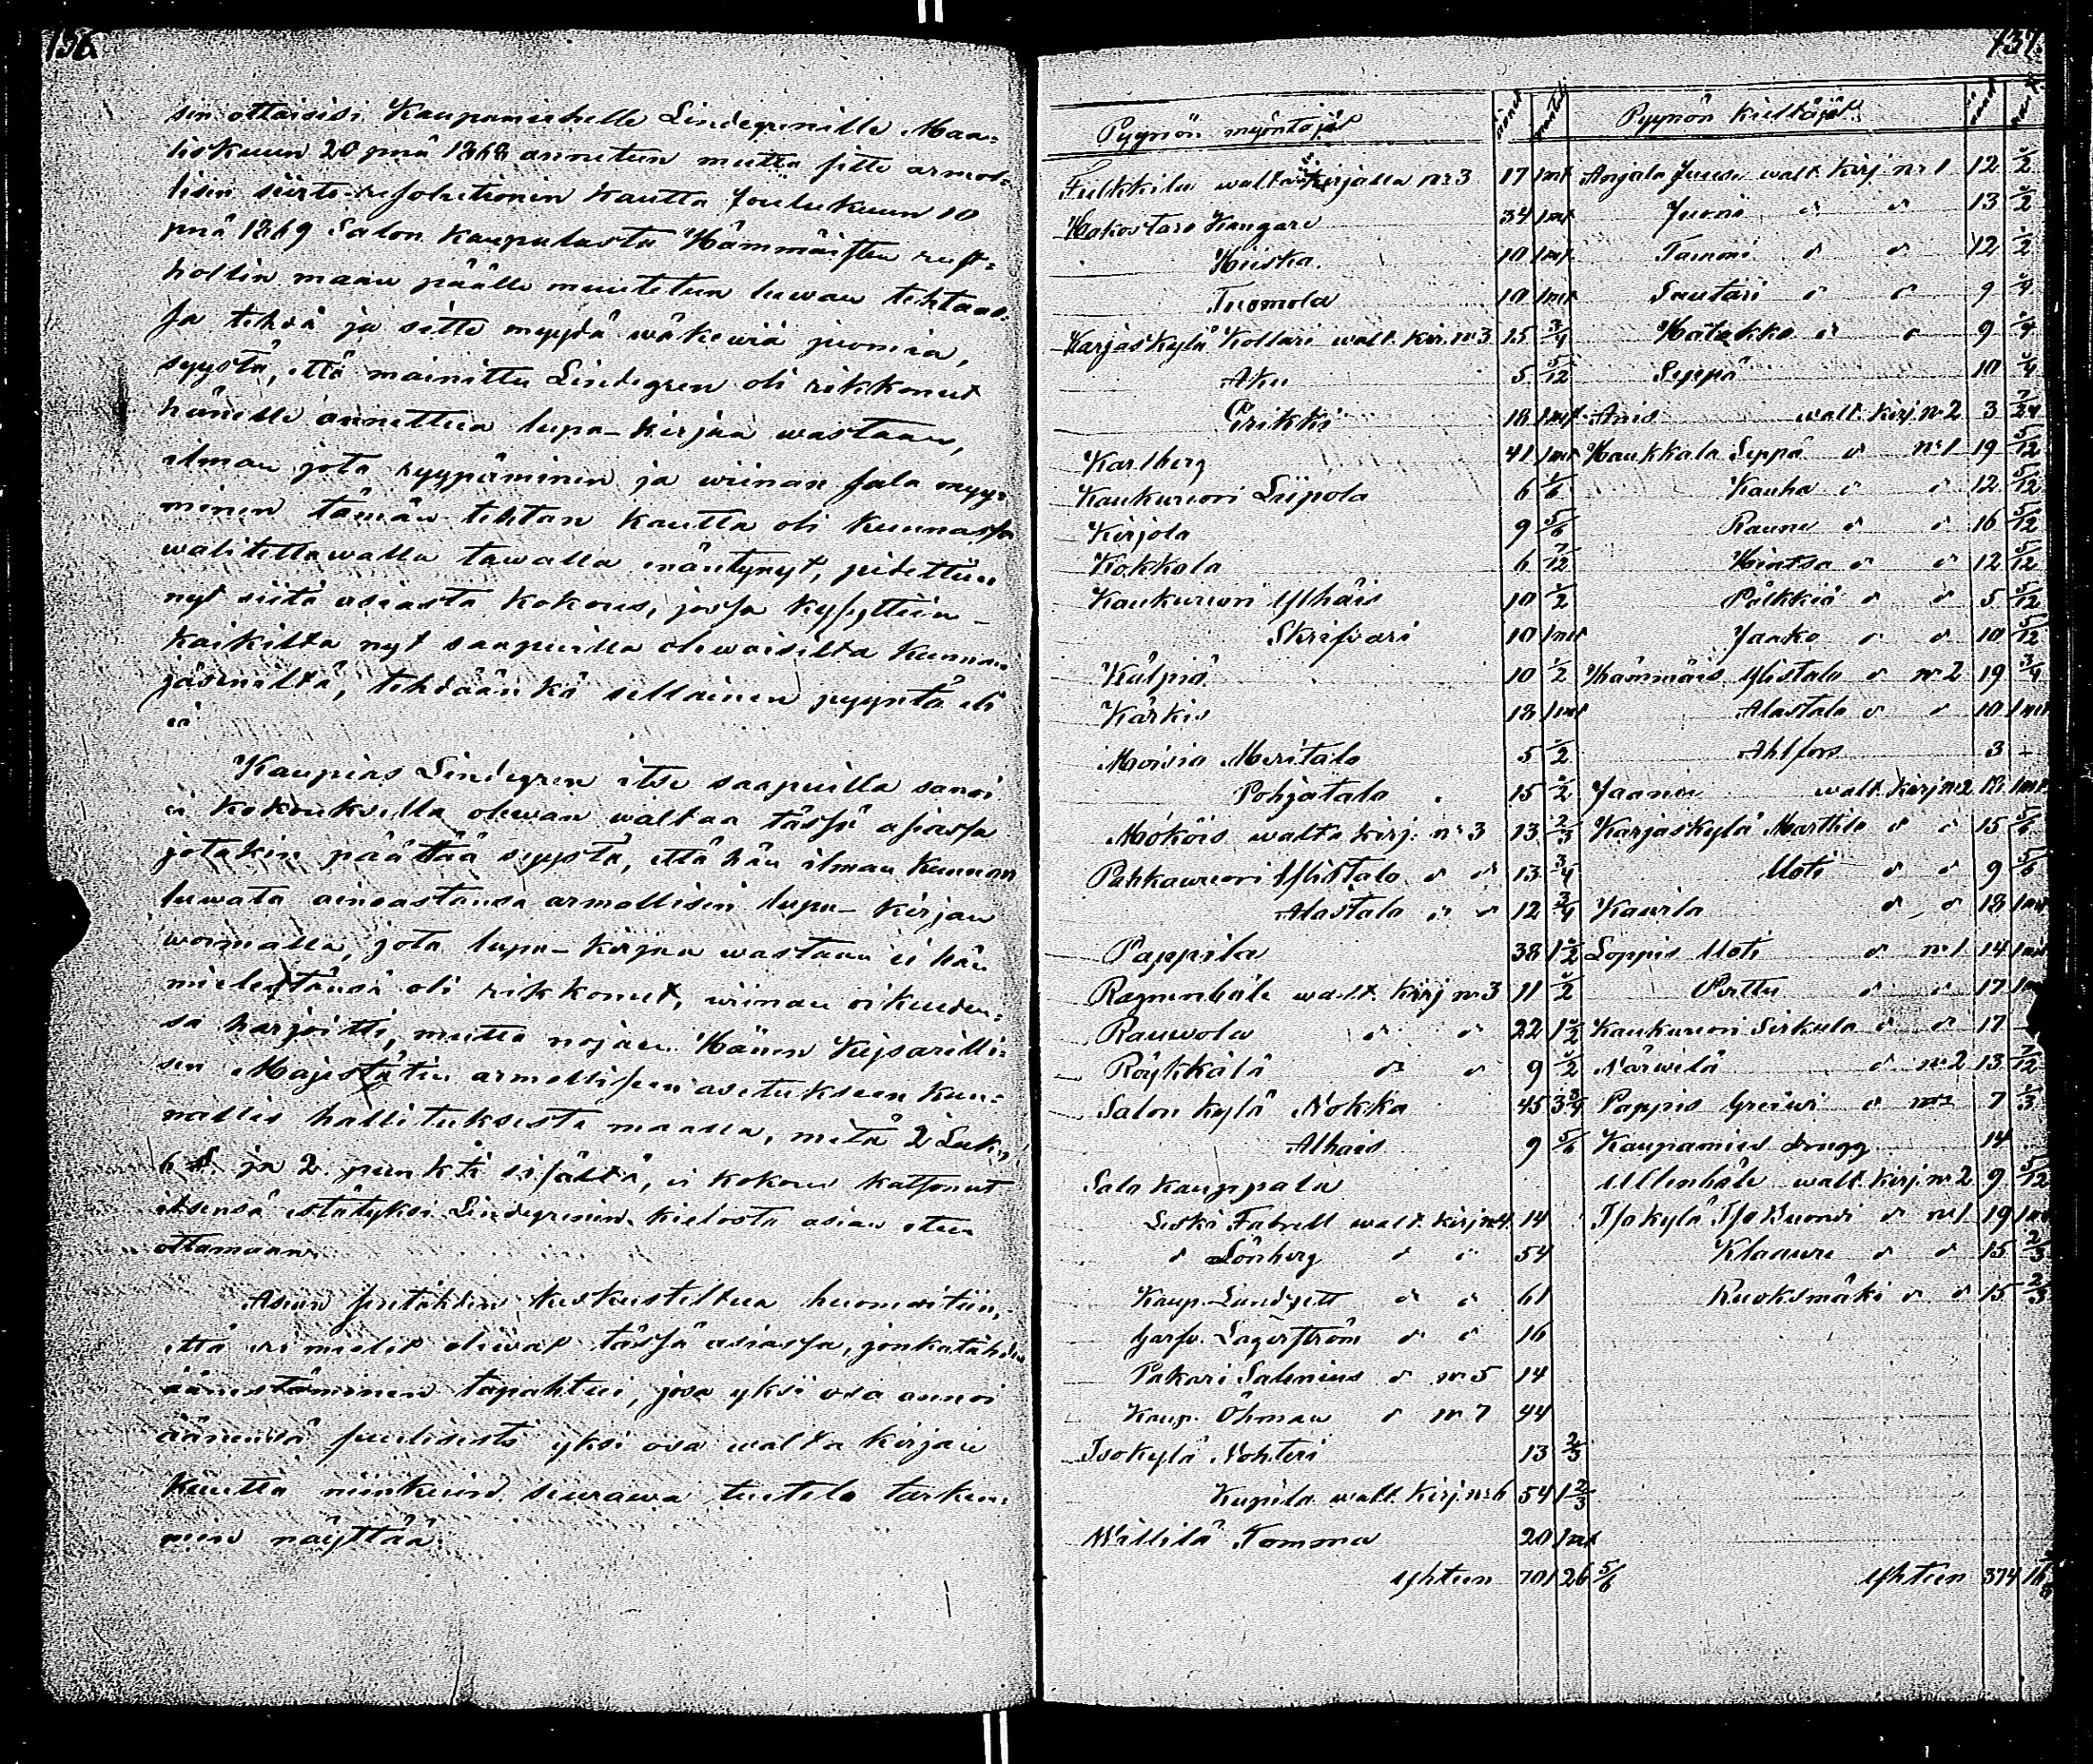 136.
sin ottaisisi Kaupamiehelle Lindegrenille Maa-
liskuun 20 pnä 1868 annetun mutta sitte armol-
lisin siirto-resolutionin kautta Joulukuun 10
pnä 1869 Salon kaupalasta Hämmäisten rust-
hollin maan päälle muutetun luwan tehtaas-
sa tehdä ja sitte myydä wäkewiä juomia,
syystä, että mainittu Lindegren oli rikkonut
hänelle annettua lupa-kirjaa wastaan,
ilman jota ryypäminen ja wiinan sala myy-
minen tämän tehtan kautta oli kunnassa
walitettawalla tawalla enäntynyt, pidettiin
nyt siitä asiasta kokous, jossa kysyttiin
kaikilta nyt saapuilla olewaisilta kunnan
jäseniltä, tehdäänkö sellainen pyyntö eli
ei.
Kaupias Lindegren itse saapuilla sanoi
ei kokouksella olewan waltaa tässä asiassa
jotakin päättää syystä, että hän ilman kunnan
luwata ainoastansa armollisen lupa-kirjan
woimalla, jota lupa-kirjaa wastaan ei hän
mielestänsä oli rikkonut, wiinan oikeuden-
sa harjoitti, mutta nojaen Hänen Keisarilli-
sen Majestätin armollisen asetukseen kun-
nallis hallituksesta maalla, mitä 2 Luk.
6 § ja 2 punkti sisältä, ei kokous katsonut
itsensä estätyksi Lindegrenin kielosta asian eteen
ottamaan.
Asian putähden keskusteltua huomaitiin,
että eri mielet oliwat tässä asiassa, jonkatähden
äänestäminen tapahtui, josa yksi osa annoi
äänensä suulisesti yksi osa walta kirjain
kautta niinkuin seurawa luetelo tarkem-
min näyttää:
137.
Pyynön myöntäjät äänet manttali Pyynön kieltäjät äänet
Fulkkila walta kirjalla n:3 17 1mt Anjala Juusi walt. kirj n:1 12 1/2
Hakostaro Kangari 34 1mt Juoni d d 13 1/2
Hiiska 10 1mt Tammi d d 12 1/2
Tuomola 10 1mt Santari d d 9 1/4
Karjaskylä Kollari walt. kir. n:3 15 3/4 Hatakko d d 9 1/4
Aku 5 5/12 Seppä 10 1/4
Erikki 18 1mt Anis walt. kirj. n:2 3 7/24
Karlberg 41 1mt Haukkala Seppä d n:1 19 5/12
Kaukurion Liipola 6 1/6 Kauha d d 12 5/12
Kirjola 9 5/6 Rauna d d 16 5/12
Kokkola 6 7/12 Hintsa d d 12 5/12
Kaukurion Ylhäis 10 1/2 Pälkkiä d d 5 5/12
Skrifvari 10 1mt Jaako d d 10 5/12
Kälpiä 10 1/2 Hämmäis Ylistalo d n:2 19 3/4
Kärkis 18 1mt Alastalo d d 10 1mt
Moisio Meritalo 5 1/2 Ahlfors 3 -
Pohjatalo 15 1/2 Jaanin walt. kirj n:2 18 1mt
Mököis walta kirj. n:3 13 2/3 Karjaskylä Marttila d d 15 5/6
Pahkawuori Ylistalo d d 13 3/4 Uoti d d 9 5/6
Alastalo d d 12 3/4 Kawila d d 18 1mt
Pappila 38 1 1/2 Loppis Uoti d n:1 14 1mt
Ragnenböle walt. kirj n:3 11 1/2 Perttu d d 17
Rauwola d d 22 1 1/2 Kaukurion Sirkula d d 17
Röykkälä d d 9 1/2 Närwilä d n:2 13 7/12
Salon kylä Nokka 45 3 3/4 Pappis Greiwi d 7 1/3
Alhais 9 5/6 Kaupamies drugg 14
Salo kauppala Ullenböle walt. kirj. n:2 9 5/12
Leski Fabrell walt. kirj n:4 14 Isokylä Iso Buondi d n:1 19 1mt
d Lönberg d d 54 Klaawu d d 15 2/3
Kaup. Lundgett d d 61 Ruoksmäki d d 15 2/3
Garfv. Lagerström d d 16
Pakari Salenius d n:5 14
Kaup. Öhman d n:7 44
Isokylä Nohteri 13 2/3
Kupila walt. kirj. n:6 54 1 2/3
Willilä Tomma 20 1mt
Yhteen 701 26 5/6 Yhteen 374